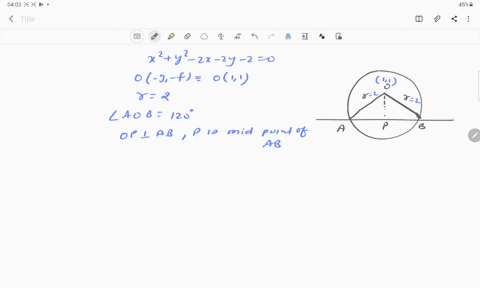 04:03
45%
Title
x²+y²-2x-2y-2=0
O(-g,-f) ≡ O(1,1)
r=2
∠AOB = 120°
OP⊥AB, P is mid point of
AB
(1,1)
O
r=2
r=2
A
P
B